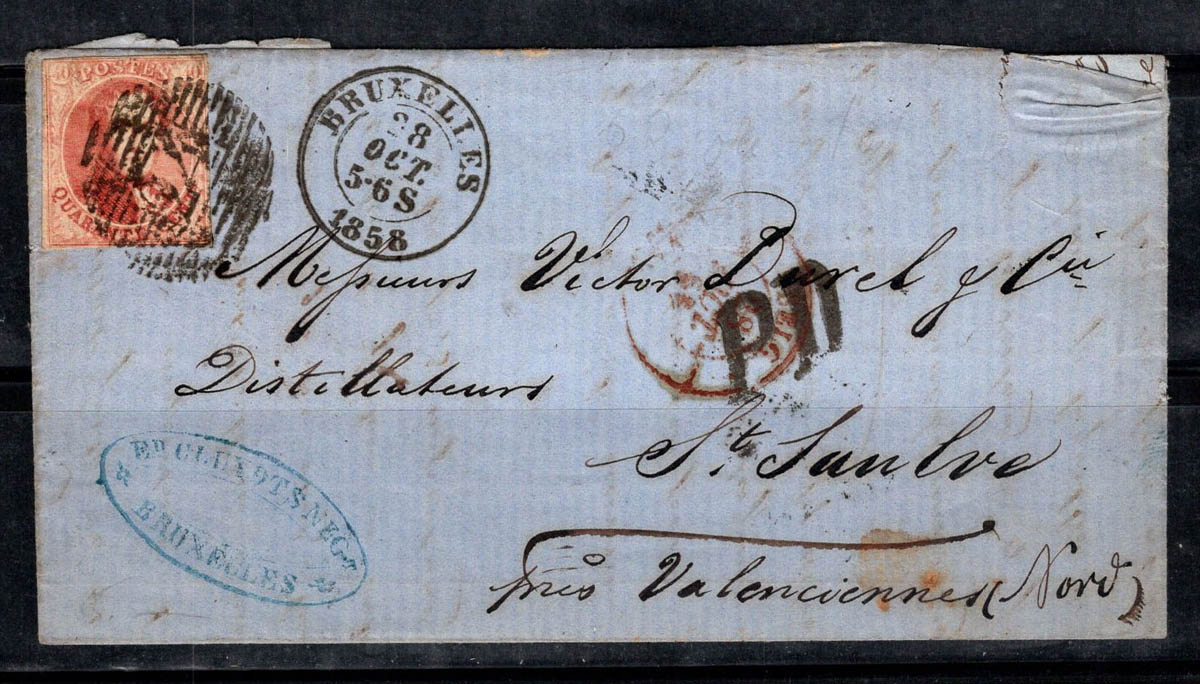 POSTES
BRUXELLES
28
OCT.
5-6S
1858
Messieurs Victor Durel & Cie
PD
Distillateurs
St. Saulve
près Valenciennes (Nord)
ED CLUYDTS NEGT
BRUXELLES